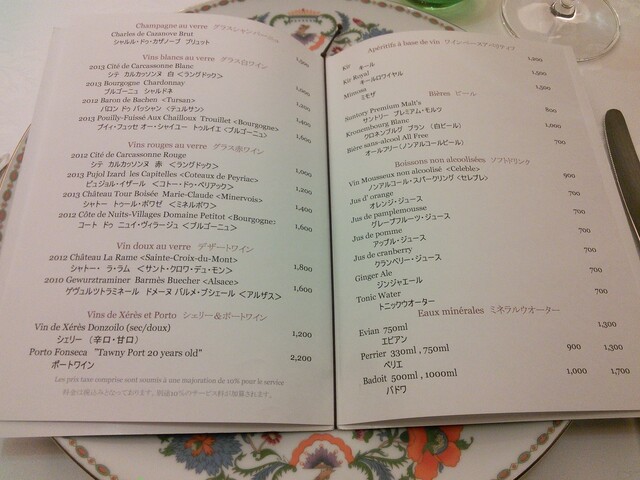 Champagne au verre グラスシャンパーニュ
Charles de Cazanove Brut 1,500
シャルル・ドゥ・カザノーブ ブリュット
Vins blancs au verre グラス白ワイン
2013 Cité de Carcassonne Blanc 1,000
シテ カルカッソンヌ 白 <ラングドック>
2013 Bourgogne Chardonnay
ブルゴーニュ シャルドネ
2012 Baron de Bachen <Tursan>
バロン ドゥ バッシャン <テュルサン>
2013 Pouilly-Fuissé Aux Chailloux Trouillet <Bourgogne> 1,600
プイィ・フュッセ オー・シャイユー トゥルイエ <ブルゴーニュ>
Vins rouges au verre グラス赤ワイン
2012 Cité de Carcassonne Rouge 1,000
シテ カルカッソンヌ 赤 <ラングドック>
2013 Pujol Izard les Capitelles <Coteaux de Peyriac> 1,200
ピュジョル・イザール <コトー・ドゥ・ペリアック>
2013 Château Tour Boisée Marie-Claude <Minervois> 1,400
シャトー トゥール・ボワゼ <ミネルボワ>
2012 Côte de Nuits-Villages Domaine Petitot <Bourgogne> 1,600
コート ドゥ ニュイ・ヴィラージュ <ブルゴーニュ>
Vin doux au verre デザートワイン
2012 Château La Rame <Sainte-Croix-du-Mont> 1,800
シャトー・ラ・ラム <サント・クロワ・デュ・モン>
2010 Gewurztraminer Barmès Buecher <Alsace> 1,600
ゲヴュルツトラミネール ドメーヌ バルメ・ブシェール <アルザス>
Vins de Xérès et Porto シェリー＆ポートワイン
Vin de Xérès Donzoilo (sec/doux) 1,200
シェリー (辛口・甘口)
Porto Fonseca "Tawny Port 20 years old" 2,200
ポートワイン
Les prix taxe comprise sont soumis à une majoration de 10% pour le service
料金は税込みとなっております。別途10%のサービス料が加算されます。
Apéritifs à base de vin ワインベースアペリティフ
Kir 1,200
キール
Kir Royal 1,500
キールロワイヤル
Mimosa 1,500
ミモザ
Bières ビール
Suntory Premium Malt's 800
サントリー プレミアム・モルツ
Kronenbourg Blanc 1,000
クロネンブルグ ブラン (白ビール)
Bière sans-alcool All Free 700
オールフリー(ノンアルコールビール)
Boissons non alcoolisées ソフトドリンク
Vin Mousseux non alcoolisé <Celeble> 900
ノンアルコール・スパークリング <セレブレ>
Jus d' orange 700
オレンジ・ジュース
Jus de pamplemousse 700
グレープフルーツ・ジュース
Jus de pomme 700
アップル・ジュース
Jus de cranberry 700
クランベリー・ジュース
Ginger Ale 700
ジンジャエール
Tonic Water 700
トニックウオーター
Eaux minérales ミネラルウオーター
Evian 750ml 1,300
エビアン
Perrier 330ml , 750ml 900 1,300
ペリエ
Badoit 500ml , 1000ml 1,000 1,700
バドワ